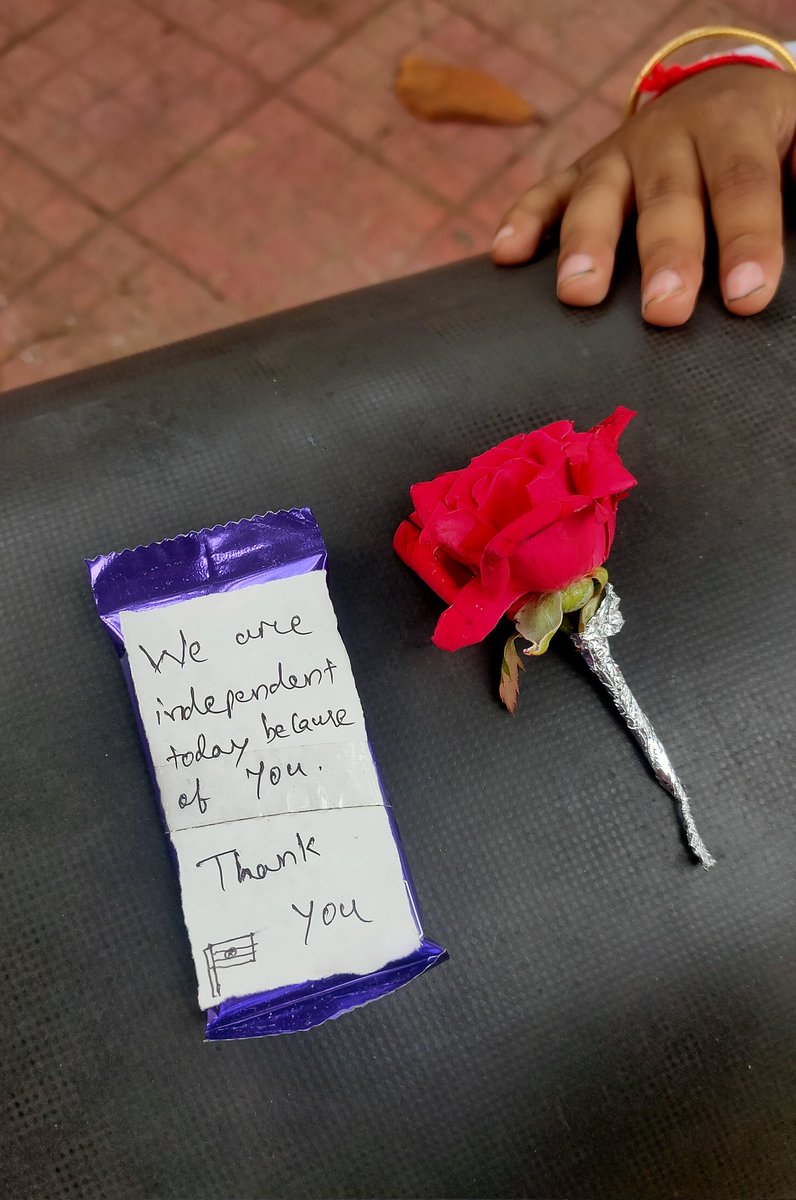 We are
independent
today because
of You.
Thank
You